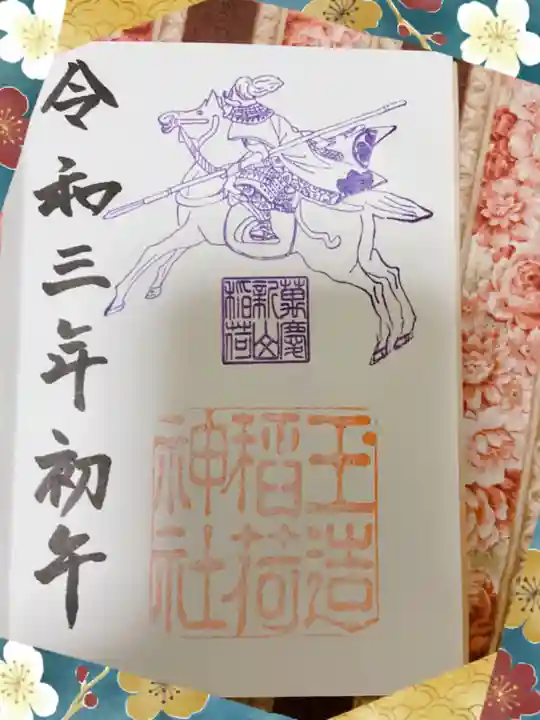 令和三年初午
萬慶
新山
稲荷
玉造
稲荷
神社